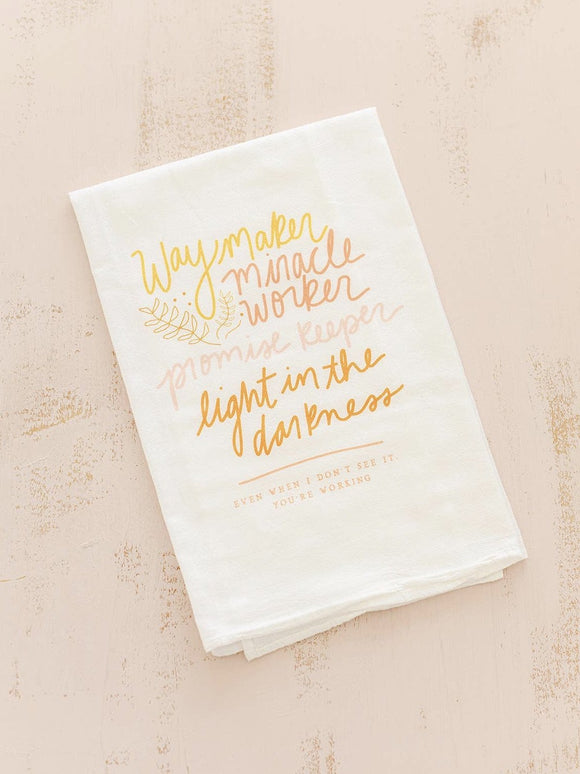 Way maker
miracle
worker
promise keeper
light in the
darkness
EVEN WHEN I DON'T SEE IT,
YOU'RE WORKING